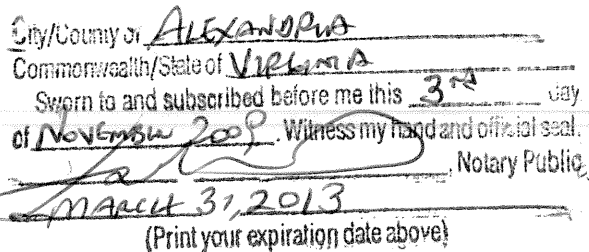 City/County of ALEXANDRIA
Commonwealth/State of VIRGINIA
Sworn to and subscribed before me this 3rd day
of NOVEMBER 2009. Witness my hand and official seal.
, Notary Public
MARCH 31, 2013
(Print your expiration date above)